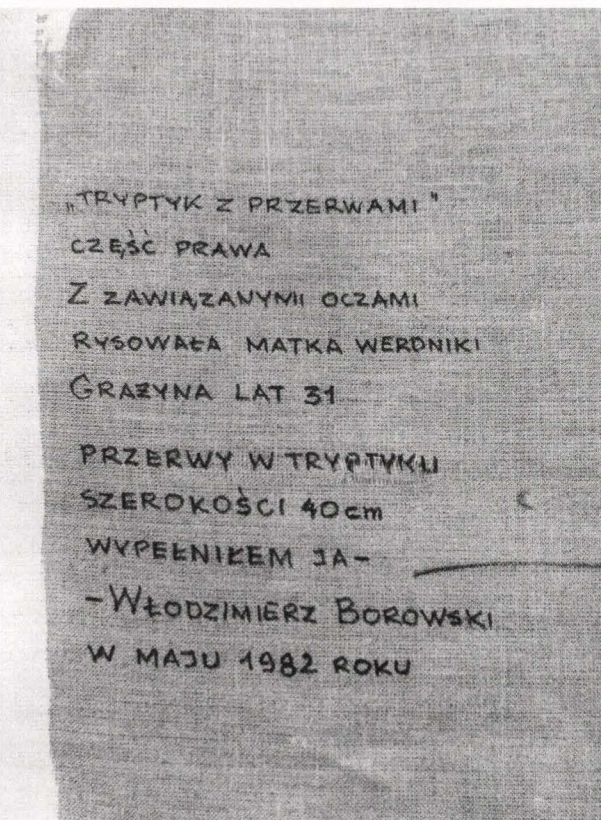 „TRYPTYK Z PRZERWAMI"
CZĘŚĆ PRAWA
Z ZAWIĄZANYMI OCZAMI
RYSOWAŁA MATKA WERONIKI
GRAŻYNA LAT 31
PRZERWY W TRYPTYKU
SZEROKOŚCI 40cm
WYPEŁNIŁEM JA-
-WŁODZIMIERZ BOROWSKI
W MAJU 1982 ROKU